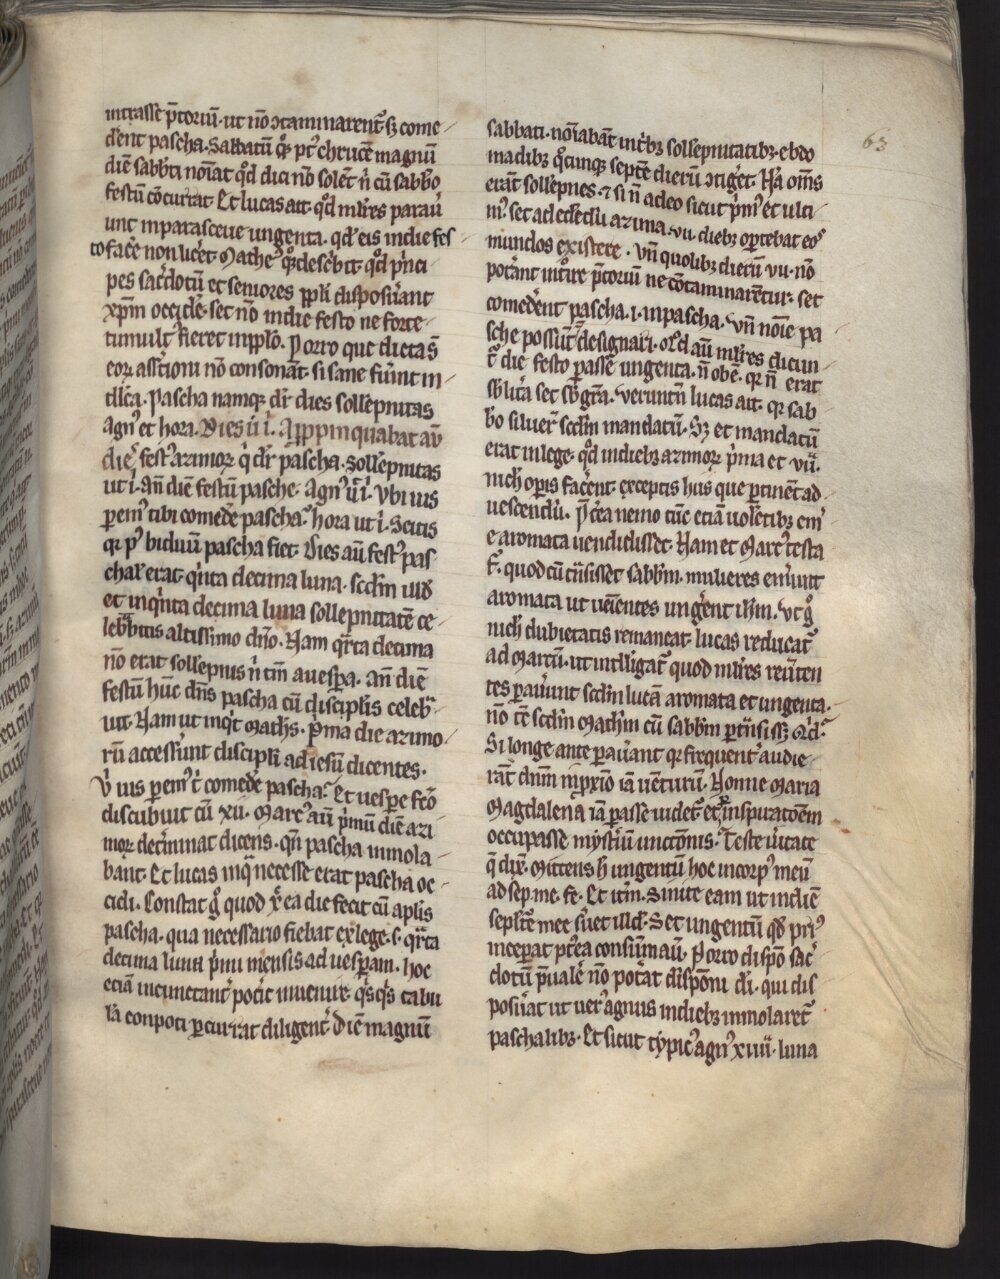 intrasse p̄toriū. ut nō ↄtaminarent᷑ sꝫ come
dent pascha. Sabbatū qꝫ pꝰ chrucē magnū
diē sabbti nōīat qd̓ dici nō solet n̄ cū sabb̓o
festū cōcurrat Et lucas ait. qd̓ ml̓ıeres paraū
unt inparasceue ungenta. qd̓ eis indie fes
to fac̓e non lic̓et Mathe᷒
pes sac̓dotū et seniores ppl̓i disposūant
xp̄m occid̓e. set nō indie festo ne forte
tumultꝰ fieret inpplō. Porro que dicta s̄
eoꝝ assc̓tioni nō consonāt. si sane fiūnt in
tll̓ca. Pascha namqꝫ dr̄ dies sollēpnitas
Agnꝰ et hora. Dies ū i. Appropinquabat aū
dieˢ festꝰ azimoꝝ q̇ dr̄ pascha. Sollēpnitas
ut i. An̄ diē festū pasche. Agnꝰ ū i. Vbi uis
ꝑemꝰ tibi comed̓e pascha. hora ut i. Scitis
qꝛ pꝰ biduū pascha fiet. Dies aū festꝰ pas
chal̓ erat q̇nta decima luna. scd̓m illd̓
et inq̇nta decima luna sollēpnitatē ce
leb̓bitis altissimo dn̄o. Nam q̈rta decima
nō erat sollēpnis n̄ tm̄ auesꝑa. An̄ diē
festū hūc dn̄s pascha cū discipl̓is celeb̓
uit. Nam ut inq̇t Math̓s. P̓ma die azimo
rū access̓unt discipl̓i ad iesū dicentes.
V̓ uis ꝑemꝰ t̓ comed̓e pascha. Et uesꝑe fc̄o
discubuit cū xii. Marcꝰ aū p̓mū diē azi
moꝝ det̓minat dicens. qn̄ pascha inmola
bant. Et lucas inq̇ necesse erat pascha oc
cidi. Constat g̊ quod x̄ ea die fecit cū apl̓is
pascha. qua necessario fiebat ex lege. s. q̈rta
decima luna p̓mi mensis ad uesꝑam. hoc
eciā incunctant᷑ pot̓it inuenire. q̇sq̇s tabu
la conpoti ꝑcurrat diligent᷑ Diē magnū
sabbati. noīabāt int̓ibꝫ sollēpnitatibꝫ. ebdo
madibꝫ q̊cunqꝫ septē dierū ↄtiḡet. Nā om̄s
erāt sollēpnes. ⁊ si n̄ adeo sicut p̓mꝰ et ulti
mꝰ. set ad edēdū azima. vii. diebꝫ oportebat eoˢ
mundos existere. Vn̄ quolibꝫ dierū vii. nō
pot̓ant int̓re p̄toriū ne cōtaminarētur. set
comed̓ent pascha. i. inpascha. Vn̄ noīe pa
sche possūt᷑ designari. Qd̓ aū ml̓ıeres dicun
t᷑ die festo ꝑasse ungenta. n̄ obē. qꝛ n̄ erat
sb̓ litt̓a set sb̓ gr̄a. Verūtn̄ lucas ait. qꝛ sab
b̓o siluerˀ scd̓m mandatū. Sꝫ et mandatū
erat inlege. qd̓ indiebꝫ azimoꝝ p̓ma et vii.
nich̓ opis fac̓ent. exceptis his que ꝑtinēt ad
uescendū. P̓t̓ea nemo tūc eciā uolētibꝫ em̓
e aromata uendidisset. Nam et Marcꝰ testa
t᷑. quod cū t̓nsisset sabb̓m. mulieres em̓unt
aromata ut uēientes ung̓ent ih̄m. Vt g̊
nich̓ dubietatis remaneat. lucas reducat᷑
ad Marcū. ut intelligat᷑ quod ml̓ıeres reūten
tes ꝑauūnt scd̓m lucā aromata et ungenta.
nō tc̄ scd̓m Math̓m cū sabb̓m ꝑt̓nsisset.
Si longe ante ꝑauant qꝛ frequent᷑ audie
rāt dn̄m inpxīo iā uēturū. Nonne Maria
Magdalena iā ꝑasse uidet᷑ et p̓ inspiratōem
occupasse myst̓iū unctōnis. Teste ūitate
q̄ dix̄. Mittens h̓ ungentū hoc incorpꝰ meū
ad sep. me. fe. Et it̓m. Sinite eam ut indiē
sepl̓t̓e mee s̓uet illd̓. Set ungentū qd̓ priꝰ
inceperat pt̓ea consūmauī. Porro dispō sac̓
dotū p̄ual̓e nō pot̓at disponi di. qui dis
posūat ut uer᷒ agnus indiebꝫ inmolaret᷑
paschalibꝫ. Et sicut typicꝰ agnꝰ xiiii. luna
63